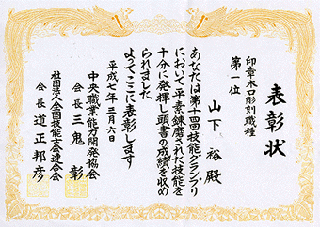 表彰状
印章木口彫刻職種
第一位
山下 裕 殿
あなたは第十四回技能グランプリ
において平素錬磨された技能を
十分に発揮し頭書の成績を収め
られました
よってここに表彰します
平成七年三月六日
中央職業能力開発協会
会長 三鬼 彰
社団法人全国技能士会連合会
会長 道正邦彦